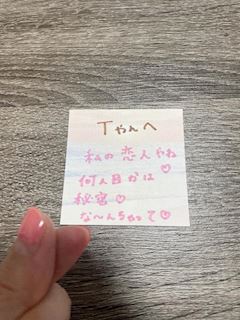 Tやんへ
私の恋人やね♡
何人目かは
秘密♡
な〜んちゃって♡